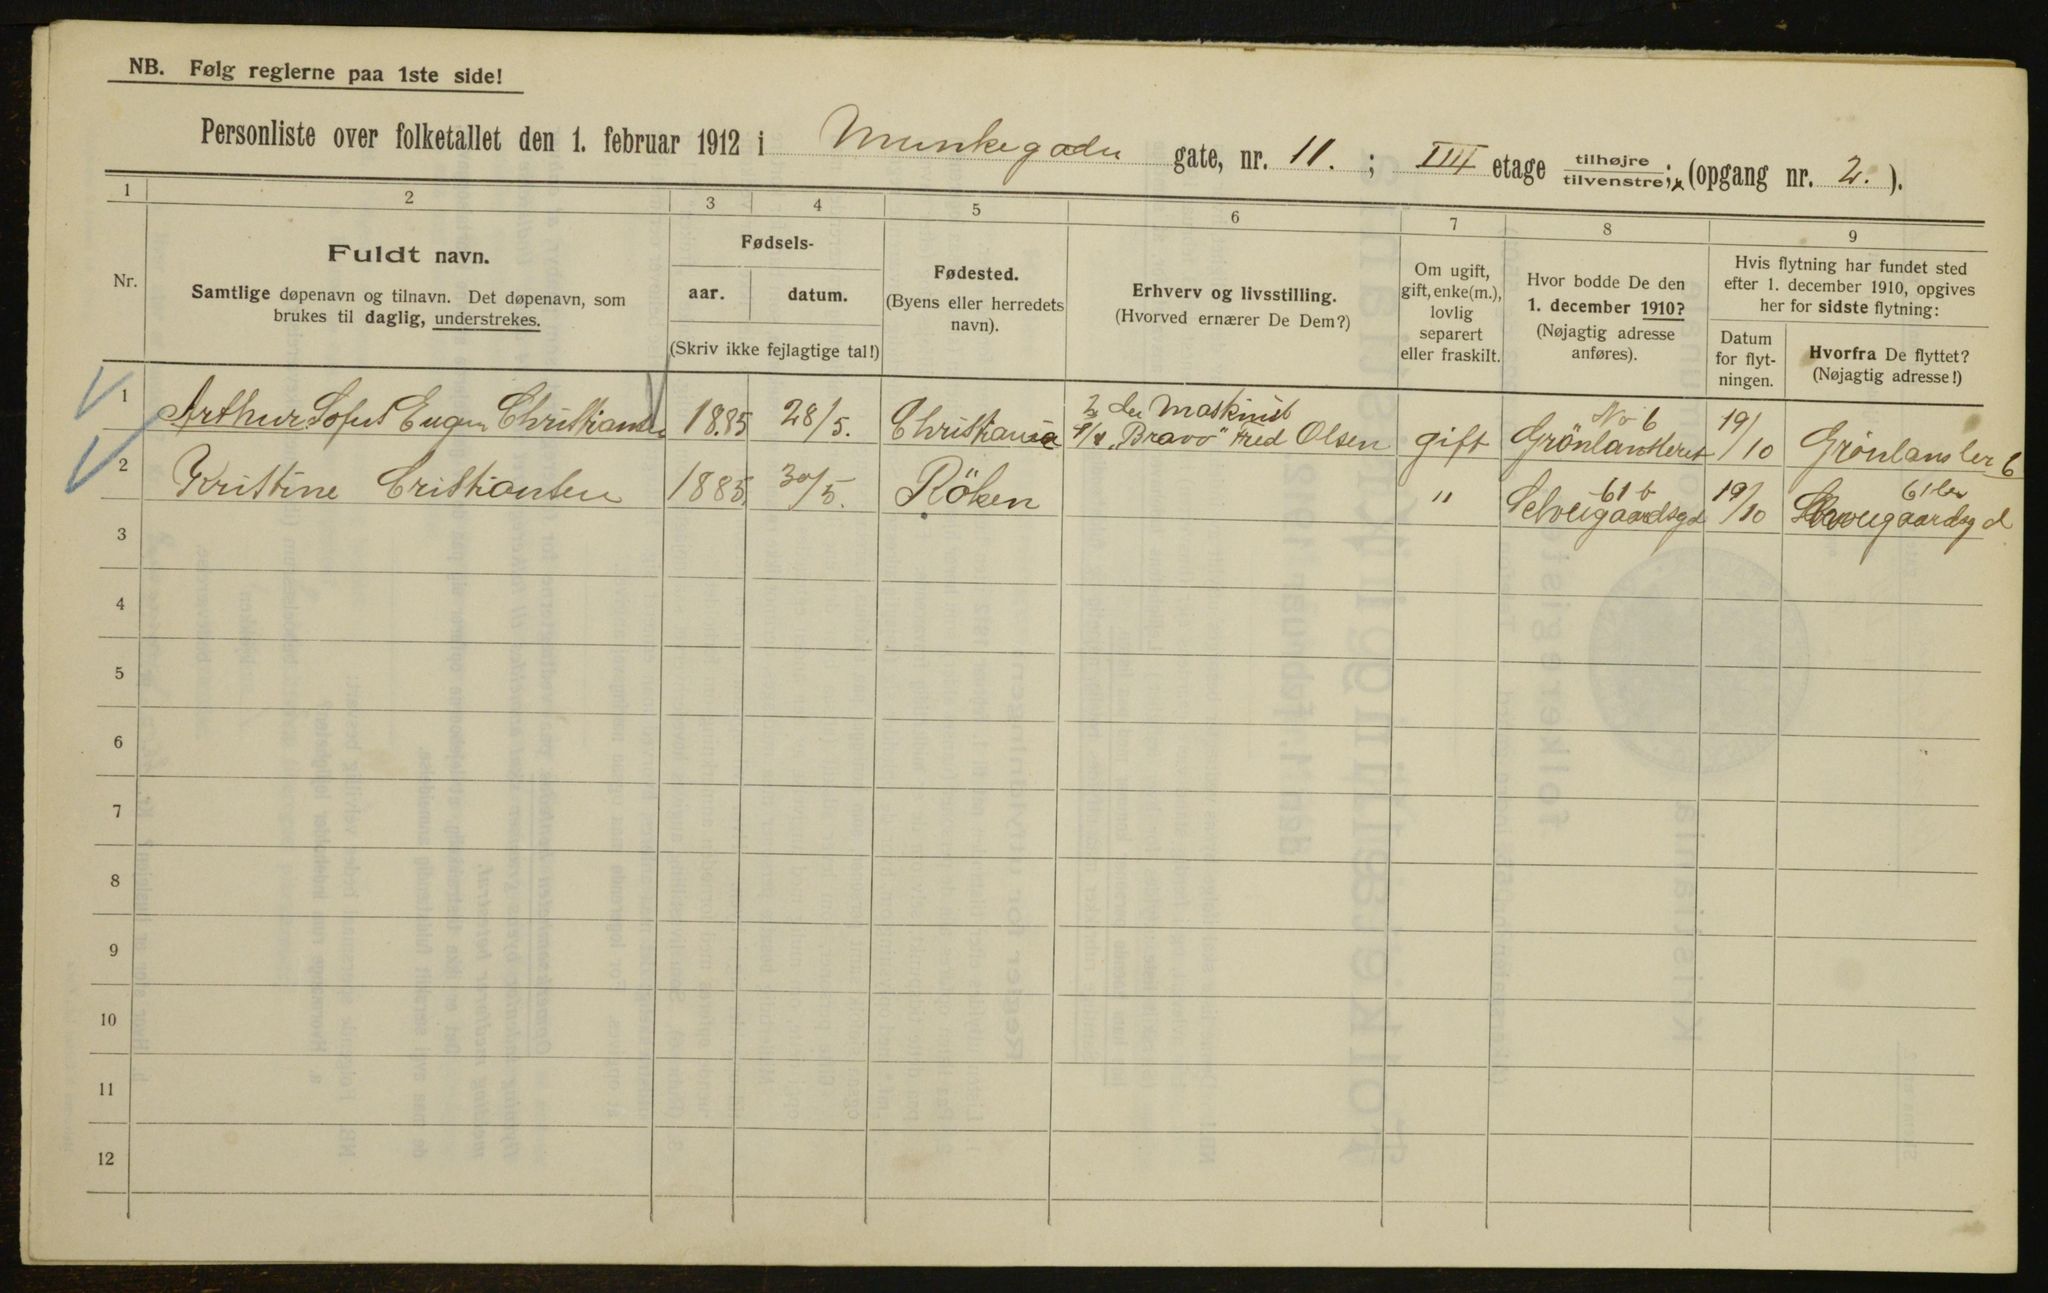 NB. Følg reglerne paa 1ste side!
Personliste over folketallet den 1. februar 1912 i Munkegaden gate, nr. 11. ; III etage tilhøjre tilvenstre ; (opgang nr. 2. ).
1 2 3 4 5 6 7 8 9
Nr.
Fuldt navn.
Samtlige døpenavn og tilnavn. Det døpenavn, som
brukes til daglig, understrekes.
Fødsels-
aar. datum.
(Skriv ikke fejlagtige tal!)
Fødested.
(Byens eller herredets
navn).
Erhverv og livsstilling.
(Hvorved ernærer De Dem?)
Om ugift,
gift, enke(m.),
lovlig
separert
eller fraskilt.
Hvor bodde De den
1. december 1910?
(Nøjagtig adresse
anføres).
Hvis flytning har fundet sted
efter 1. december 1910, opgives
her for sidste flytning:
Datum
for flyt-
ningen.
Hvorfra De flyttet?
(Nøjagtig adresse!)
1 Arthur Sofus Eugen Christiansen 1885 28/5. Christiania 2den Maskinist
"Bravo" Fred Olsen gift No 6
Grönlandsleret 19/10 Grönlandsler 6
2 Kristine Cristiansen 1885 30/5. Röken " 61 b
19/10
3
4
5
6
7
8
9
10
11
12